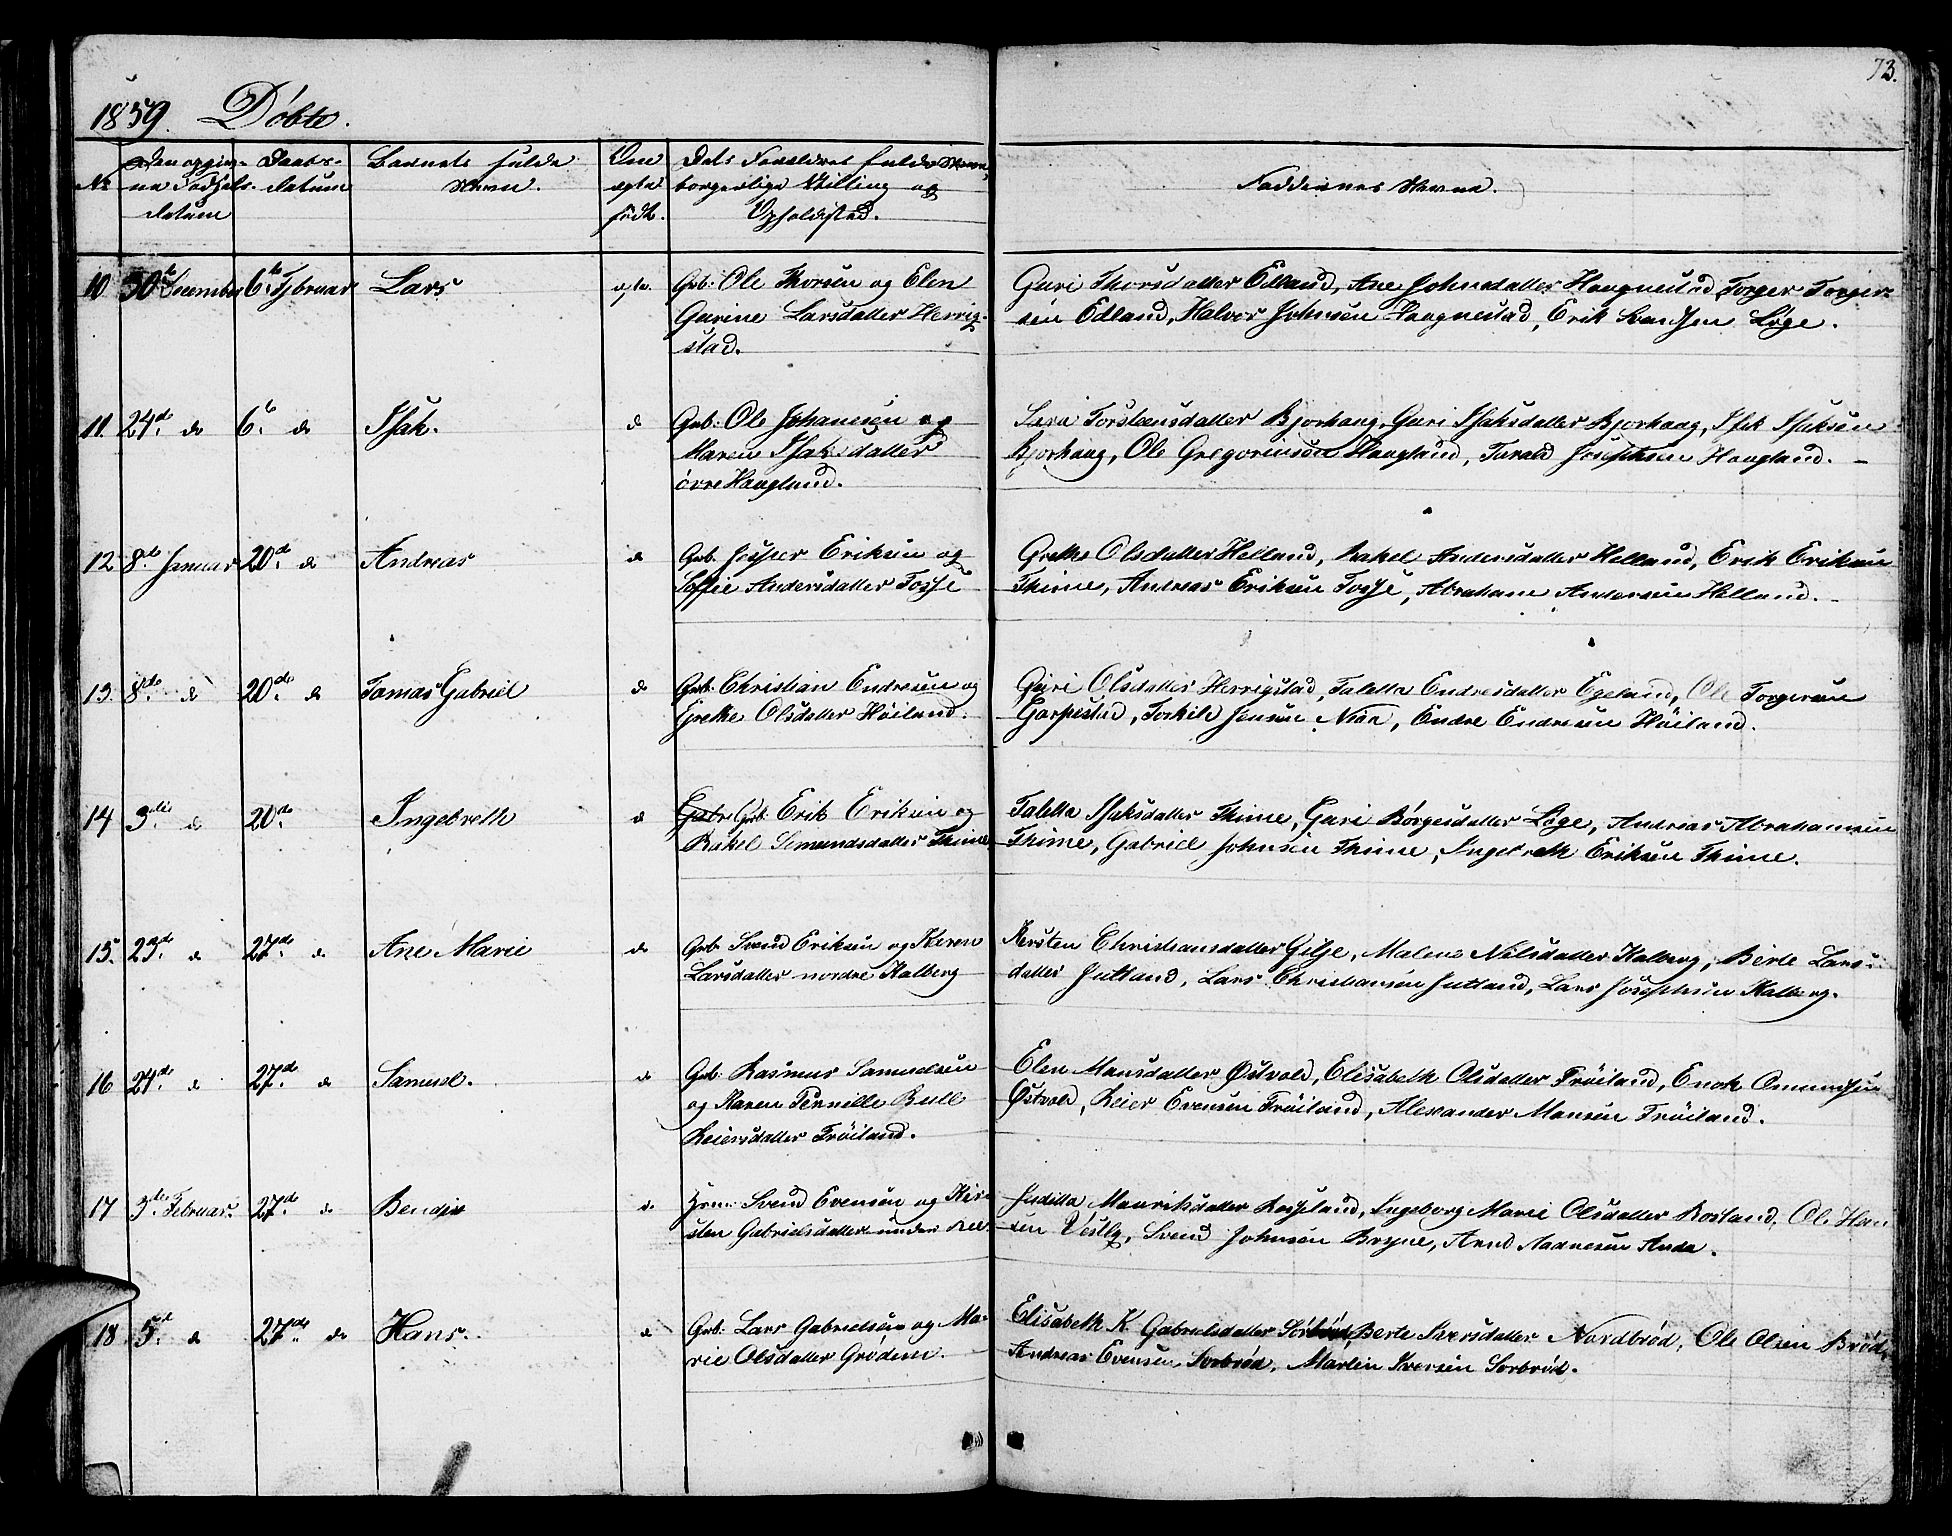 73.
1859. Döbte.
No
Den opgivne Fødsels datum
Daabs-datum
Barnets fulde Navn.
Om ægte født.
Dets Forældres fulde Navne, borgerlige Stilling og Opholdssted.
Faddernes Navne.
10 30te December 6te Februar Lars ægte. Grb: Ole Thorsen og Elen
Gurine Larsdatter Herrig-
stad.
Guri Thorsdatter Edland, Ane Johnsdatter Haagnestad, Torger Torger-
sen Edland, Halvor Johnsen Haagnestad, Erik Svendsen Løge.
11. 24de do 6te do Isak. do Grb: Ole Johansen og
Maren Isaksdatter
øvre Haugland.
Sara Torstensdatter Bjorhaug, Guri Isaksdatter Bjorhaug, Isak Isaksen
Bjorhaug, Ole Gregoriusen Haugland, Tarald Josephsen Haugland. –
12 8de Januar 20de do Andreas do Grb. Jesper Eriksen og
Soffie Andersdatter Tosse
Grethe Olsdatter Helland, Rakel Andersdatter Helland, Erik Eriksen
Thime, Andreas Eriksen Tosse, Abraham Andersen Helland. –
13. 8de do 20de do Tomas Gabriel do Grb. Christian Endresen og
Grethe Olsdatter Höiland.
Guri Olsdatter Herrigstad, Taletta Endresdatter Egeland, Ole Torgersen
Garpestad, Torkild Jensen Nær, Endre Endresen Höiland.
14 3die do 20de Ingebreth do Grb: Erik Eriksen og
Rakel Semundsdatter Thime
Taletta Isaksdatter Thime, Guri Börgesdatter Löge, Andreas Abrahamsen
Thime, Gabriel Johnsen Thime, Ingebreth Eriksen Thime.
15. 23de do 27de do Ane Marie do Grb. Svend Eriksen og Karen
Larsdatter nordre Kalberg
Kersten Christiansdatter Gilje, Malene Nilsdatter Kalberg, Berte Lars-
datter Jutland, Lars Christiansen Jutland, Lars Josephsen Kalberg.
16 24de do 27de do Samuel. do Grb. Rasmus Samuelsen
og Karen Pernille Bull
Reiersdatter Fröiland.
Elen Mansdatter Østvold, Elisabeth Olsdatter Fröiland, Enok Omundsen
Østvold, Reier Evensen Fröiland, Alexander Mansen Fröiland.
17 3die Februar. 27de do Bendix do Svend Evensen og Kir-
sten Gabrielsdatter under
Juditta Mauritsdatter Rosseland, Ingeborg Marie Olsdatter Rosland, Ole Han
sen Vestly, Svend Johnsen Bryne, Arnd Aadnesen Anda.
18 5te do 27de do Hans. do Grb. Lars Gabrielsen og Ma-
rie Olsdatter Grödem.
Elisabeth K Gabrielsdatter Sörbröd, Berte Iversdatter Nordbröd, Ole Olsen Bröd,
Andreas Evensen Sorbröd, Martin Iversen Sorbröd.